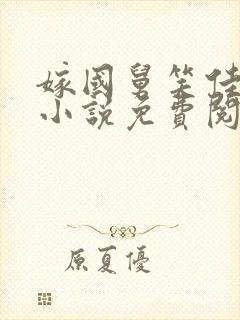 嫁國舅笑佳
小說免費閱
原夏優